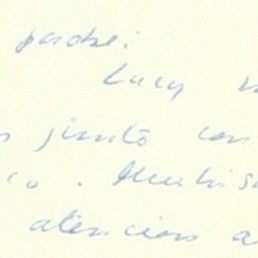 padre:
Lucy
junto con
co. Muchís
atencion a